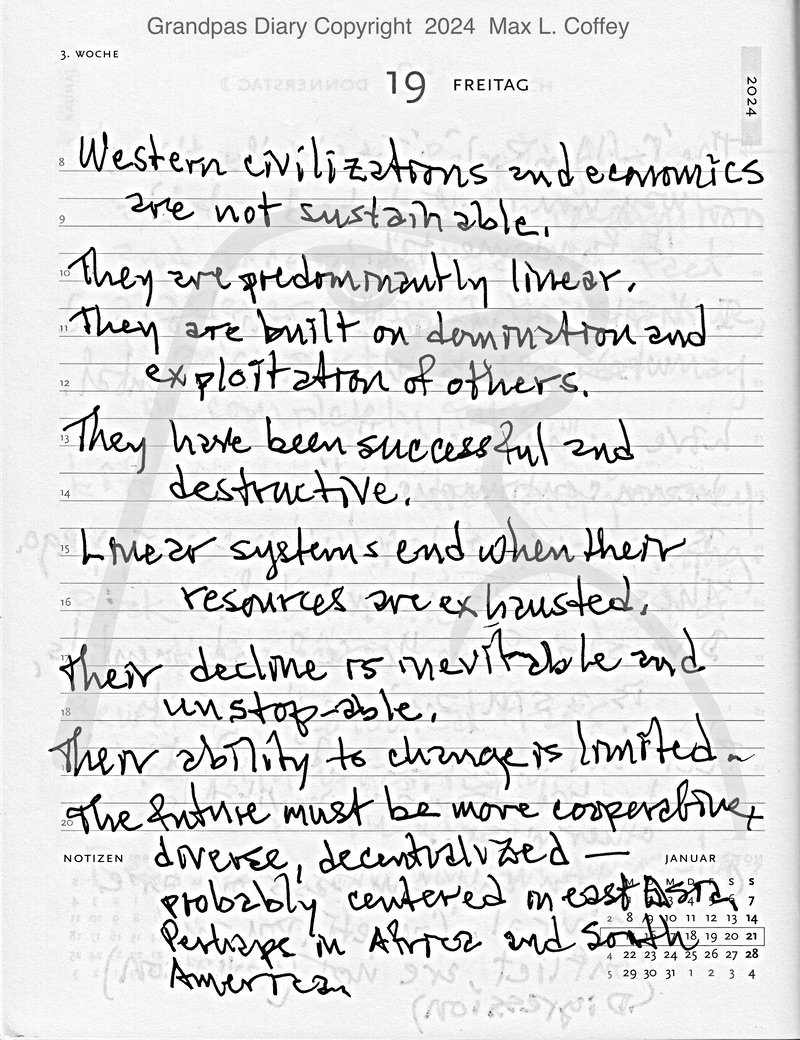 Grandpas Diary Copyright 2024 Max L. Coffey
3. WOCHE
19 FREITAG
2024
8 Western civilizations and economics
are not sustainable.
9
10 They are predominantly linear.
11 They are built on domination and
12 exploitation of others.
13 They have been successful and
14 destructive.
15 Linear systems end when their
16 resources are exhausted.
17 Their decline is inevitable and
18 unstop-able.
Their ability to change is limited.
20 The future must be more cooperative,
NOTIZEN diverse, decentralized — JANUAR
probably centered in east Asia.
Perhaps in Africa and South
American
S S
7
2 8 9 10 11 12 13 14
18 19 20 21
4 22 23 24 25 26 27 28
5 29 30 31 1 2 3 4